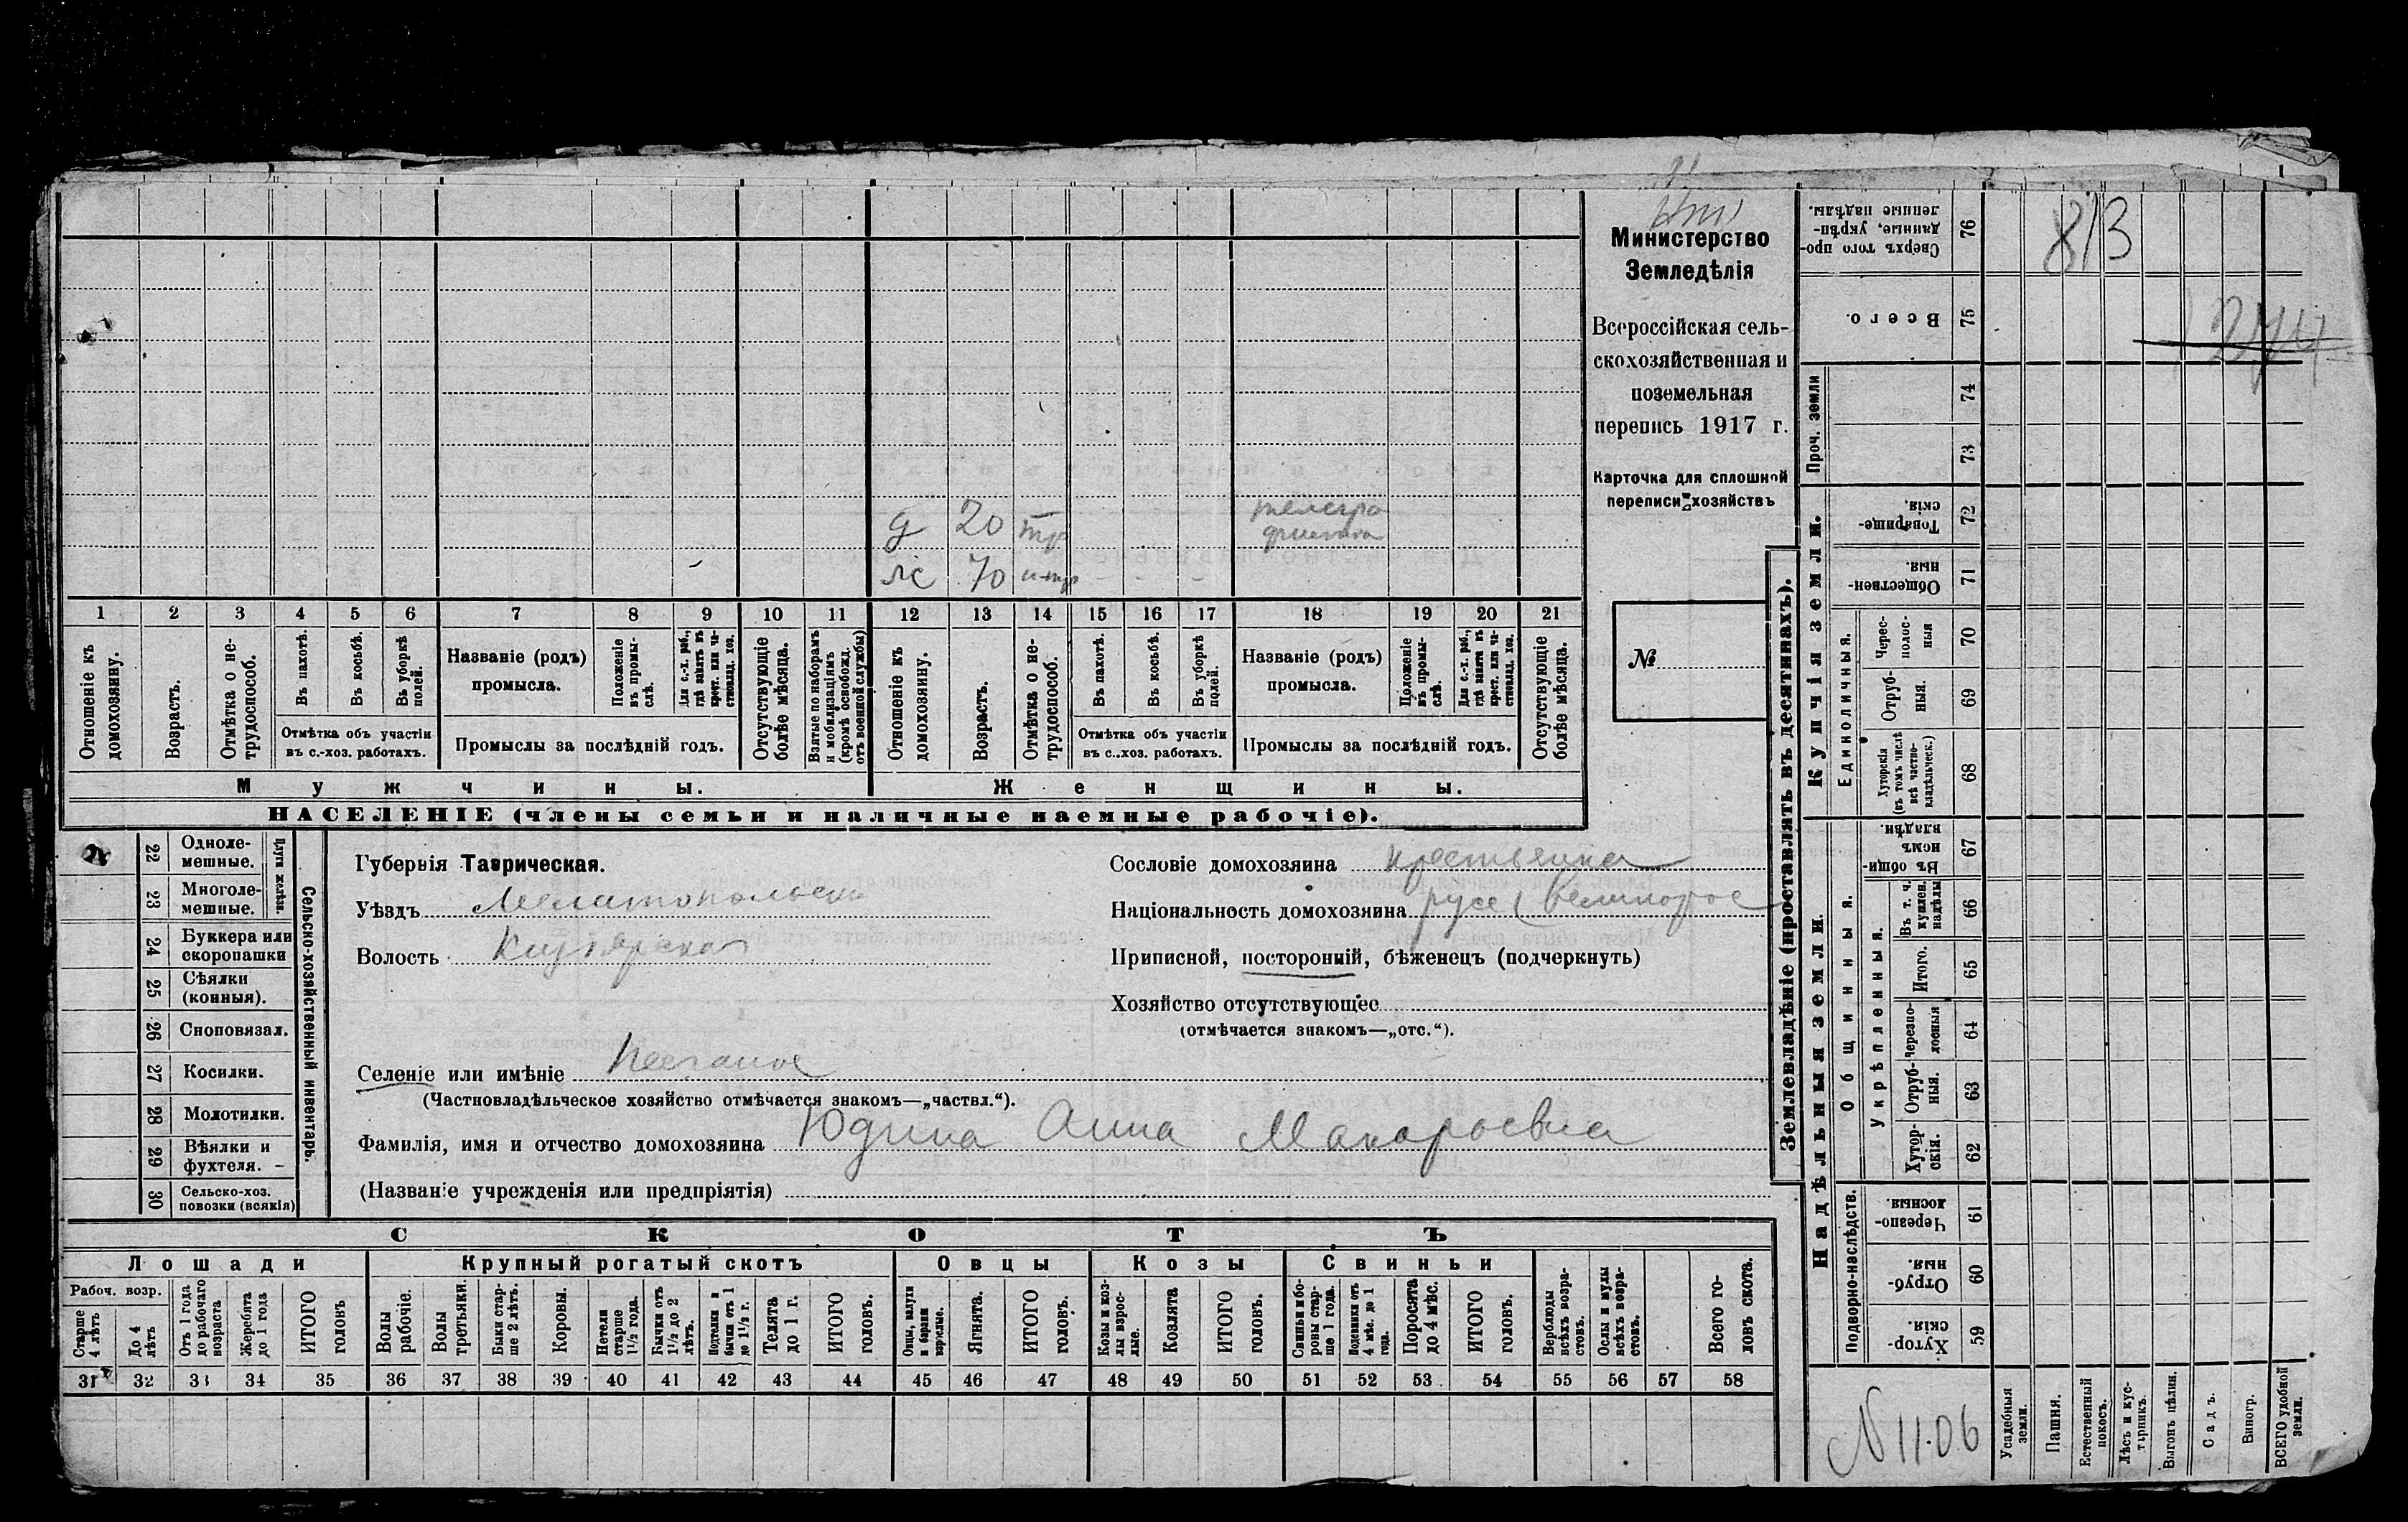 Министерство
Земледѣлія
Всероссійская сель-
скохозяйственная и
поземельная
перепись 1917 г.
Карточка для сплошной
переписи хозяйствъ
№
д 20 тр телегра
фистка
ж 70 нтр - - -
1 2 3 4 5 6 7 8 9 10 11 12 13 14 15 16 17 18 19 20 21
Отношеніе къ домохозяину.
Возрастъ.
Отмѣтка о не-трудоспособ.
Въ пахотѣ.
Въ косьбѣ.
Въ уборкѣ полей.
Отмѣтка объ участіи
въ с.-хоз. работахъ.
Названіе (родъ)
промысла.
Положеніе въ промы-слѣ.
Для с.-х. раб., гдѣ занятъ въ крест. или ча-стновлад. хоз.
Промыслы за послѣдній годъ.
Отсутствующіе болѣе мѣсяца.
Взятые по наборамъ и мобилизаціямъ (кромѣ освобожд. отъ военной службы)
Отношеніе къ домохозяину.
Возрастъ.
Отмѣтка о не-трудоспособ.
Въ пахотѣ.
Въ косьбѣ.
Въ уборкѣ полей.
Отмѣтка объ участіи
въ с..хоз. работахъ.
Названіе (родъ)
промысла.
Положеніе въ промы-слѣ.
Для с.-х. раб., гдѣ занята въ крест. или ча-стновлад. хоз.
Промыслы за послѣдній годъ.
Отсутствующіе болѣе мѣсяца.
Мужчины.
Женщины.
НАСЕЛЕНІЕ (члены семьи и наличные наемные рабочіе).
22 Одноле-
мешные.
23 Многоле-
мешные.
Плуги желѣзн.
24 Буккера или
скоропашки
25 Сѣялки
(конныя).
26 Сноповязал.
27 Косилки.
28 Молотилки.
29 Вѣялки и
фухтеля.
30 Сельско-хоз.
повозки (всякія)
Сельско-хозяйственный инвентарь.
Губернія Таврическая.
Уѣздъ Мелитопольск
Волость
Селеніе или имѣніе
(Частновладѣльческое хозяйство отмѣчается знакомъ—„частвл.“).
Фамилія, имя и отчество домохозяина Юдина Анна Макаровна
(Названіе учрежденія или предпріятія)
Сословіе домохозяина крестьянка
Національность домохозяина русс (великорос
Приписной, посторонній, бѣженецъ (подчеркнуть)
Хозяйство отсутствующее
(отмѣчается знакомъ—„отс.“).
СКОТЪ
Лошади
Крупный рогатый скотъ
Овцы
Козы
Свиньи
Рабоч. возр.
Старше 4 лѣтъ
До 4 лѣтъ
Отъ 1 года до рабочаго возраста
Жеребята до 1 года
ИТОГО головъ
Волы рабочіе.
Волы третьяки.
Быки стар-ше 2 лѣтъ.
Коровы.
Нетели старше 1½ года.
Бычки отъ 1½ до 2 лѣтъ.
Подтелки и бычки отъ 1 до 1½ г.
Телята до 1 г.
ИТОГО головъ.
Овцы, валухи и бараны взрослые.
Ягнята.
ИТОГО головъ.
Козы и коз-лы взрос-лые.
Козлята
ИТОГО головъ.
Свиньи и бо-ровы стар-ше 1 года.
Подсвинки отъ 4 мѣс. до 1 года.
Поросята до 4 мѣс.
ИТОГО головъ.
Верблюды всѣхъ возра-стовъ.
Ослы и мулы всѣхъ возра-стовъ.
Всего го-ловъ скота.
31 32 33 34 35 36 37 38 39 40 41 42 43 44 45 46 47 48 49 50 51 52 53 54 55 56 57 58
Землевладѣніе (проставлять въ десятинахъ).
Сверхъ того про-данные, укрѣп-ленные надѣлы. 76
813
Всего. 75
274
Проч. земли 74
73
Купчія земли.
Товарище-скія. 72
Обществен-ныя. 71
Единоличныя.
Черес-полос-ныя 70
Отруб-ныя. 69
Хуторскія (въ томъ числѣ всѣ частно-владѣльческ.) 68
Надѣльныя земли.
Въ общи-номъ владѣн. 67
Общинныя.
Укрѣпленныя.
Въ т. ч. куплен. надѣлы 66
Итого. 65
Черезпо-лосныя 64
Отруб-ныя. 63
Хутор-скія. 62
Подворно-наслѣдств.
Черезпо-лосныя 61
Отруб-ныя. 60
Хутор-скія. 59
N 1106
Усадебныя земли.
Пашня.
Естественный покосъ.
Лѣсъ и кус-тарникъ.
Выгонъ цѣлин.
Садъ.
Виногр.
ВСЕГО удобной земли.